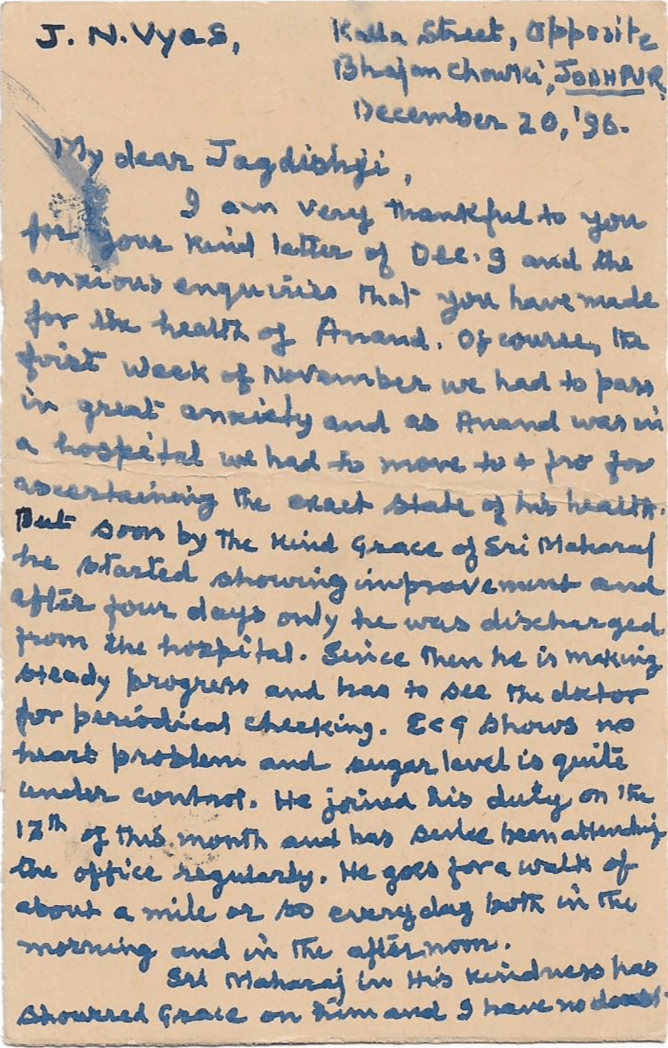 J. N. Vyas,
Kalla Street, Opposite
Bhajan Chowki, JODHPUR
December 20, '96.
My dear Jagdishji,
I am very thankful to you
for your kind letter of Dec. 9 and the
anxious enquiries that you have made
for the health of Anand. Of course, the
first week of November we had to pass
in great anxiety and as Anand was in
a hospital we had to move to & fro for
ascertaining the exact state of his health.
But soon by the kind Grace of Sri Maharaj
he started showing improvement and
after four days only he was discharged
from the hospital. Since then he is making
steady progress and has to see the doctor
for periodical checking. ECG shows no
heart problem and sugar level is quite
under control. He joined his duty on the
13th of this month and has since been attending
the office regularly. He goes for a walk of
about a mile or so everyday both in the
morning and in the afternoon.
Sri Maharaj in His kindness has
showered Grace on him and I have no doubt